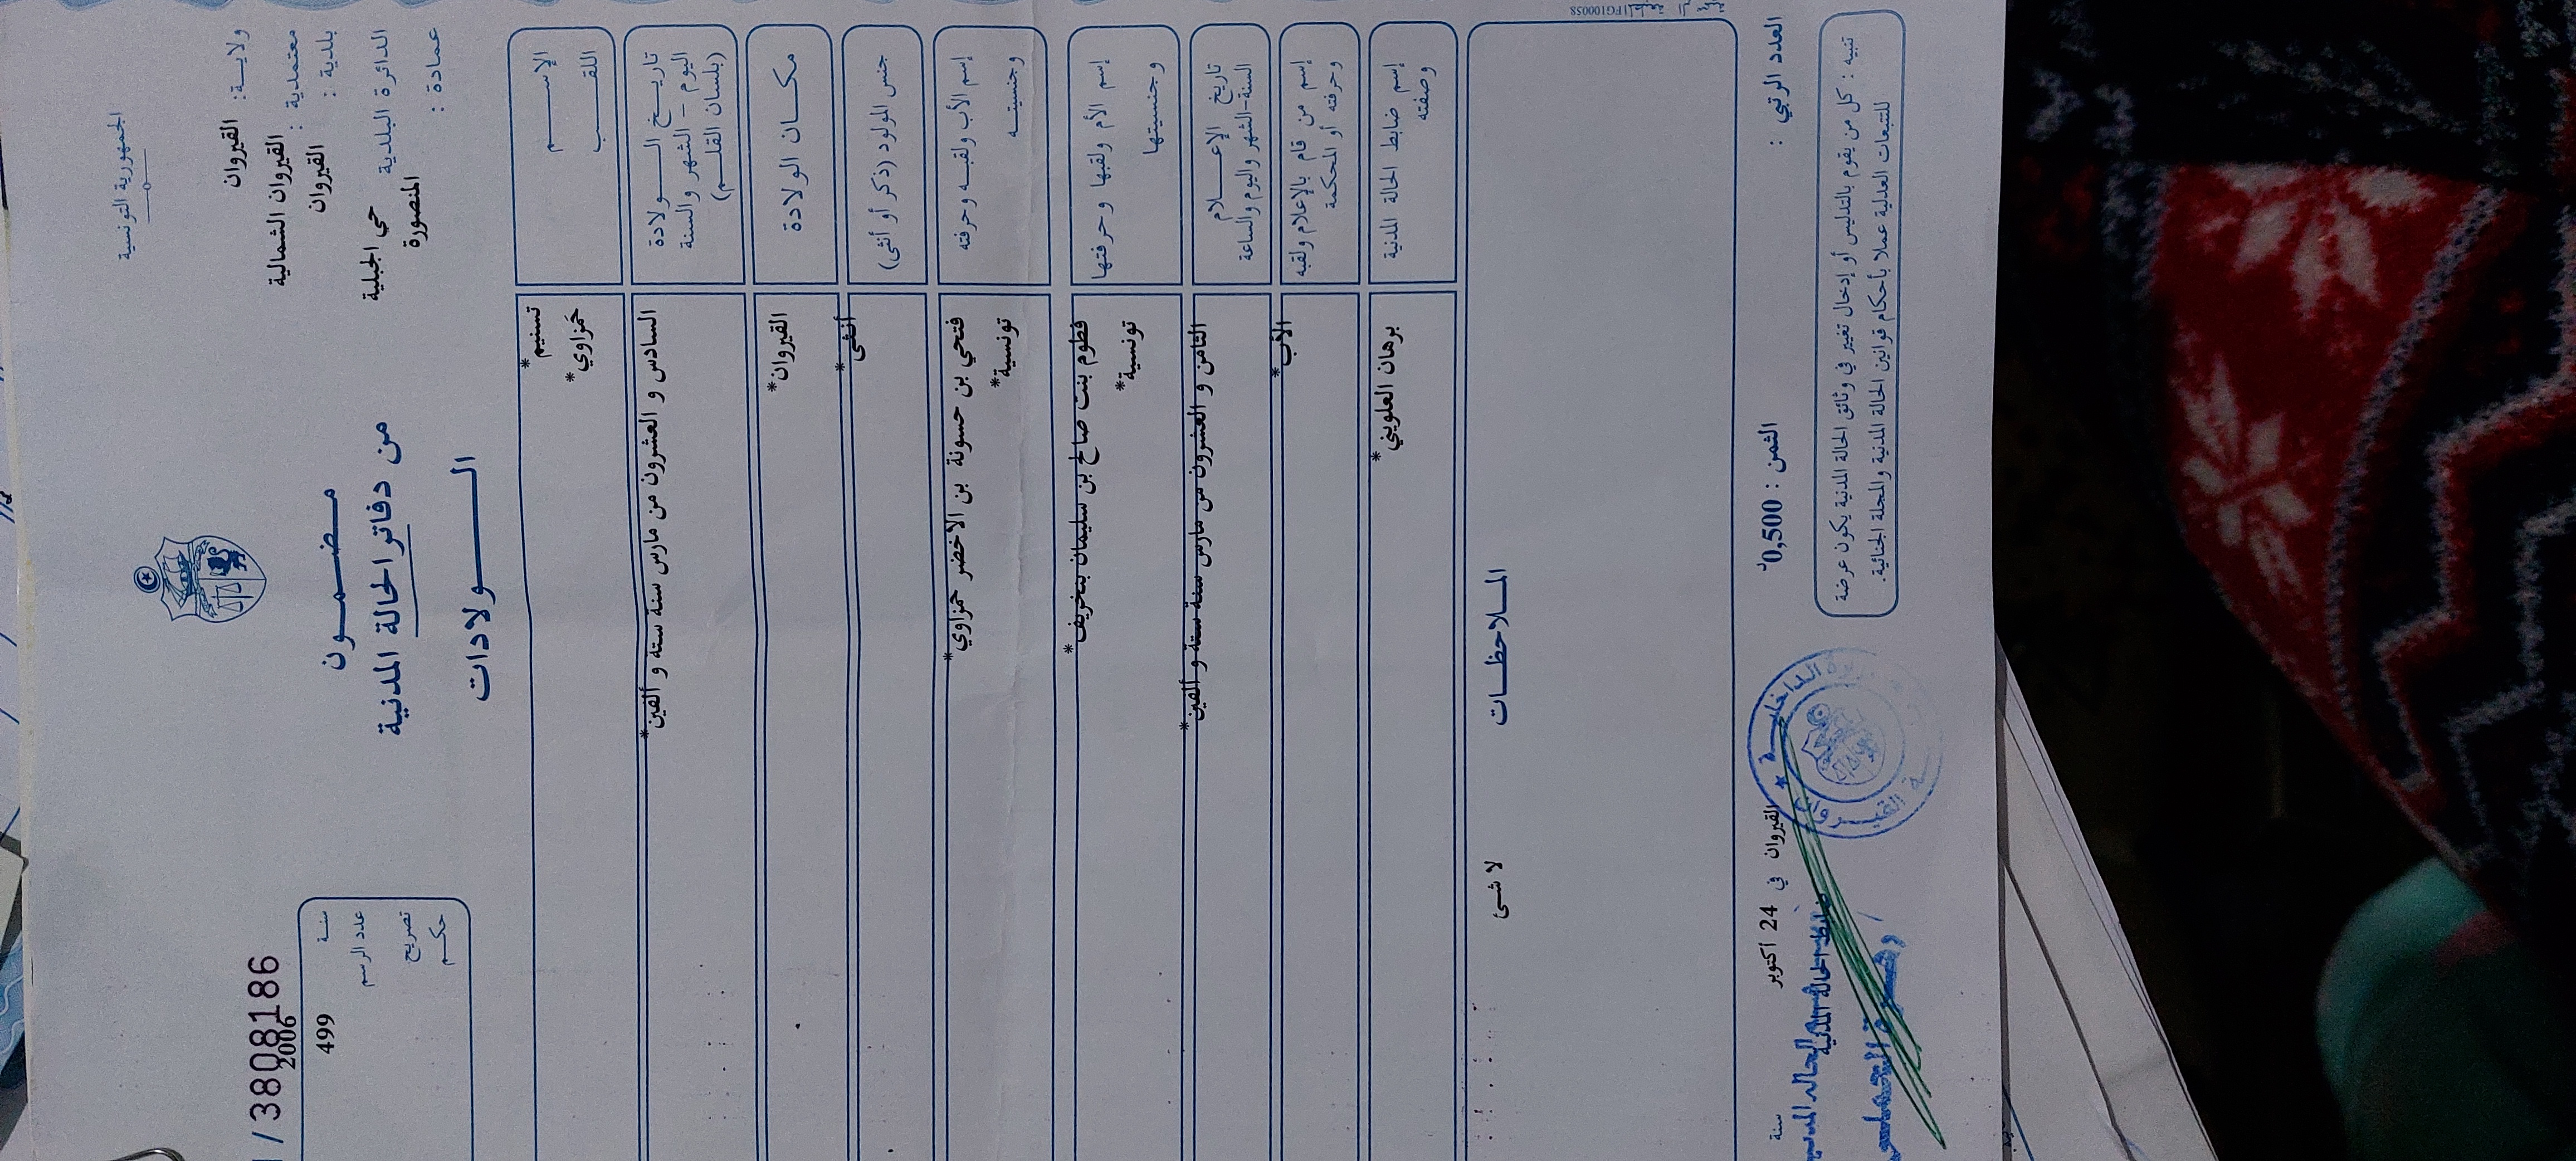 الجمهورية التونسية
ولايــة: القيروان
معتمدية : القيروان الشمالية
بلدية : القيروان
الدائرة البلدية حي الجبلية
المنصورة
عمادة :
مضـمـــون
من دفاتر الحالة المدنية
الـــولادات
/ 3808186
سنـة 2006
عدد الرسم 499
تصريح
حكـم
الإســـــم تسنيم*
اللقـــــب حمزاوي*
تاريــخ الــــولادة السادس و العشرون من مارس سنة ستة و ألفين*
اليوم - الشهر والسنة
(بلسان القلــم)
مكــان الولادة القيروان*
جنس المولود (ذكر أو أنثى) أنثى*
إسم الأب ولقبـه وحرفته فتحي بن حسونة بن الأخضر حمزاوي*
وجنسيتــه تونسية*
إسم الأم ولقبها وحرفتها فطوم بنت صالح بن سليمان بنخريف*
وجنسيتها تونسية*
تاريخ الإعــلام الثامن و العشرون من مارس سنة ستة و ألفين*
السنة-الشهر واليوم والساعة
إسم من قام بالإعلام ولقبه الأب*
وحرفته أو المحكمة
إسم ضابط الحالة المدنية برهان العلويني*
وصفته
الملاحظــات
لا شئ
العدد الرتبي :
الثمن : 0,500د
القيروان في 24 أكتوبر سنة
ضابط الحالة المدنية
تنبيه : كل من يقوم بالتدليس أو إدخال تغيير في وثائق الحالة المدنية يكون عرضة
للتتبعات العدلية عملا بأحكام قوانين الحالة المدنية والمجلة الجنائية.